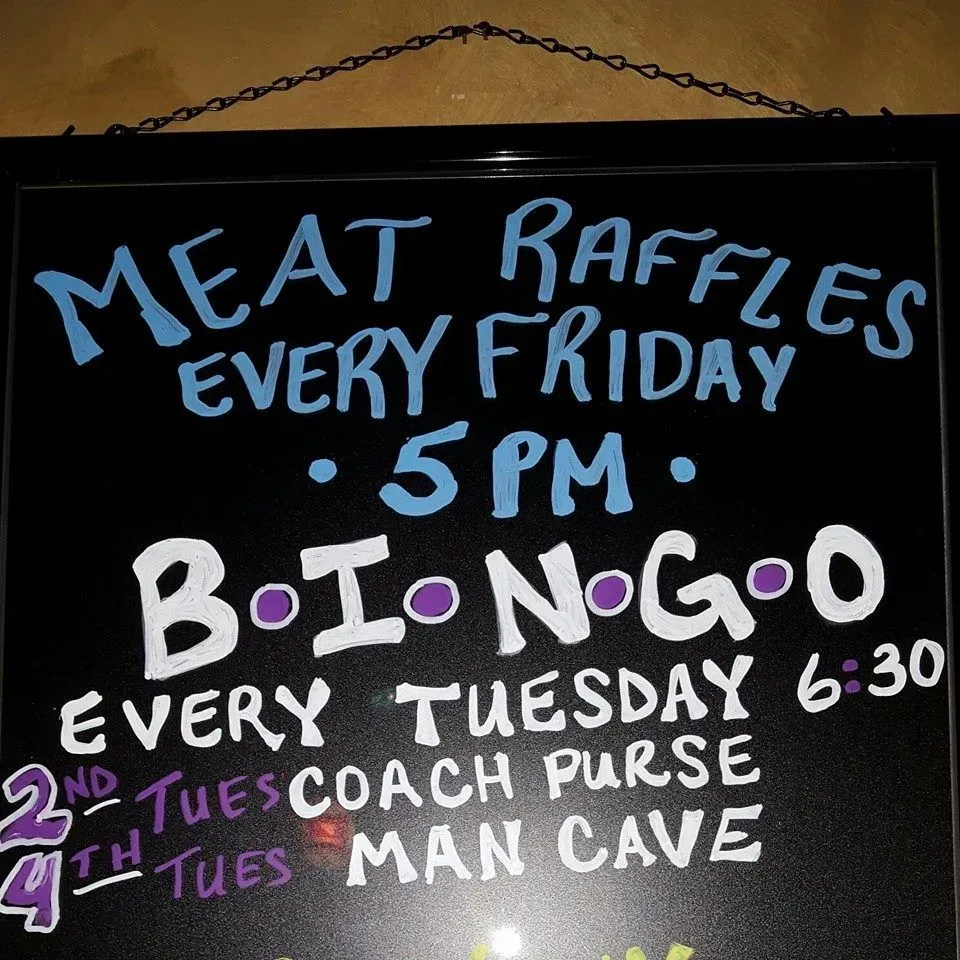 MEAT RAFFLES
EVERY FRIDAY
• 5 PM •
B•I•N•G•O
EVERY TUESDAY 6:30
2ND TUES COACH PURSE
4TH TUES MAN CAVE